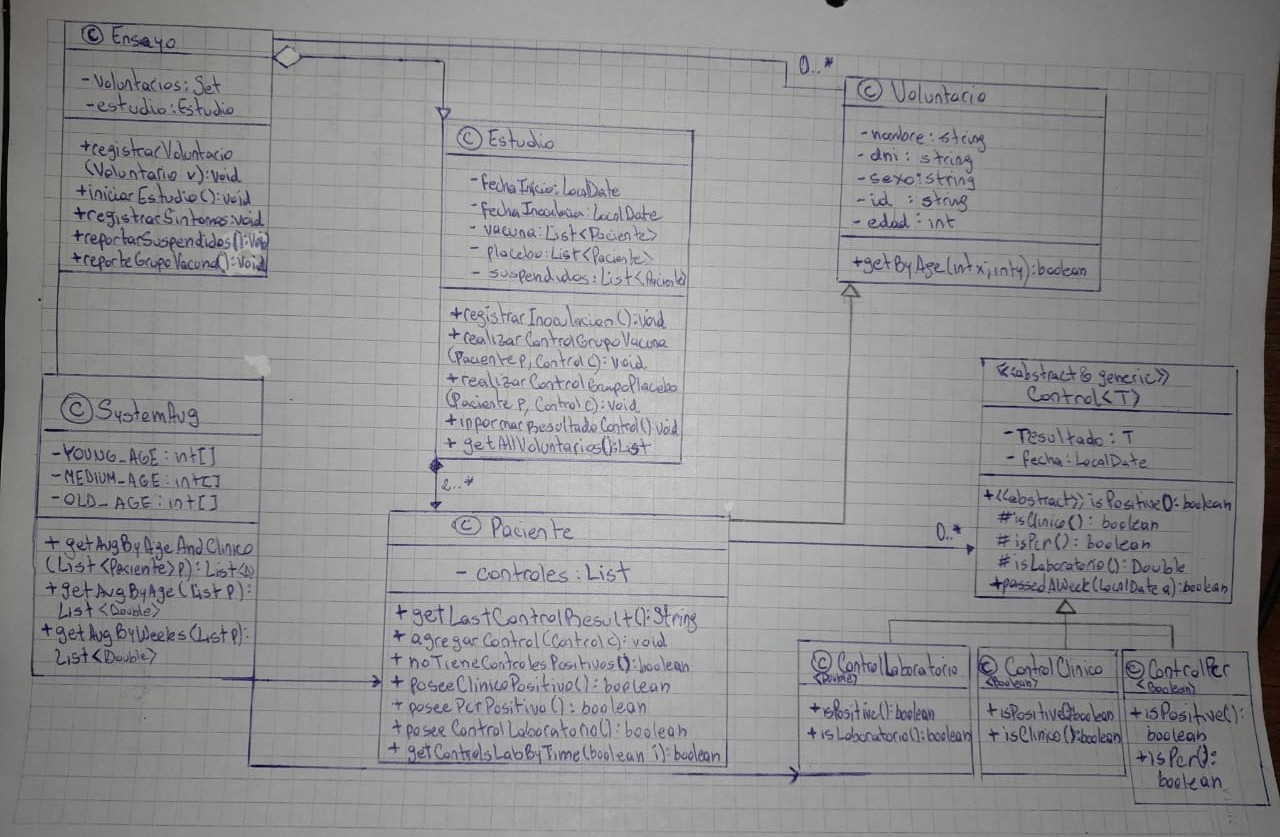 © Ensayo
- Voluntarios: Set
- estudio: Estudio
+ registrarVoluntario
(Voluntario v): void
+ iniciarEstudio(): void
+ registrarSintomas: void
+ reportarSuspendidos(): void
+ reporteGrupoVacuna(): void
0..*
© Voluntario
- nombre: string
- dni: string
- sexo: string
- id : string
- edad: int
+ getByAge(int x, int y): boolean
© Estudio
- fechaInicio: LocalDate
- fechaInoculacion: LocalDate
- vacuna: List<Paciente>
- placebo: List<Paciente>
- suspendidos: List<Paciente>
+ registrarInoculacion(): void
+ realizarControlGrupoVacuna
(Paciente p, Control c): void
+ realizarControlGrupoPlacebo
(Paciente p, Control c): void
+ informarResultadoControl(): void
+ getAllVoluntarios(): List
2..*
© SystemAvg
- YOUNG_AGE: int[]
- MEDIUM_AGE: int[]
- OLD_AGE: int[]
+ getAvgByAgeAndClinico
(List<Paciente> p): List<D>
+ getAvgByAge(List p):
List<Double>
+ getAvgByWeeks(List p):
List<Double>
© Paciente
- controles: List
+ getLastControlResult(): String
+ agregarControl(Control c): void
+ noTieneControlesPositivos(): boolean
+ poseeClinicoPositivo(): boolean
+ poseePcrPositivo(): boolean
+ poseeControlLaboratorio(): boolean
+ getControlsLabByTime(boolean i): boolean
0..*
<<abstract & generic>>
Control<T>
- resultado: T
- fecha: LocalDate
+ <<abstract>> isPositive(): boolean
# isClinico(): boolean
# isPcr(): boolean
# isLaboratorio(): Double
+ passedAWeek(LocalDate a): boolean
© ControlLaboratorio
<Double>
+ isPositive(): boolean
+ isLaboratorio(): boolean
© ControlClinico
<Boolean>
+ isPositive(): boolean
+ isClinico(): boolean
© ControlPcr
<Boolean>
+ isPositive():
boolean
+ isPcr():
boolean